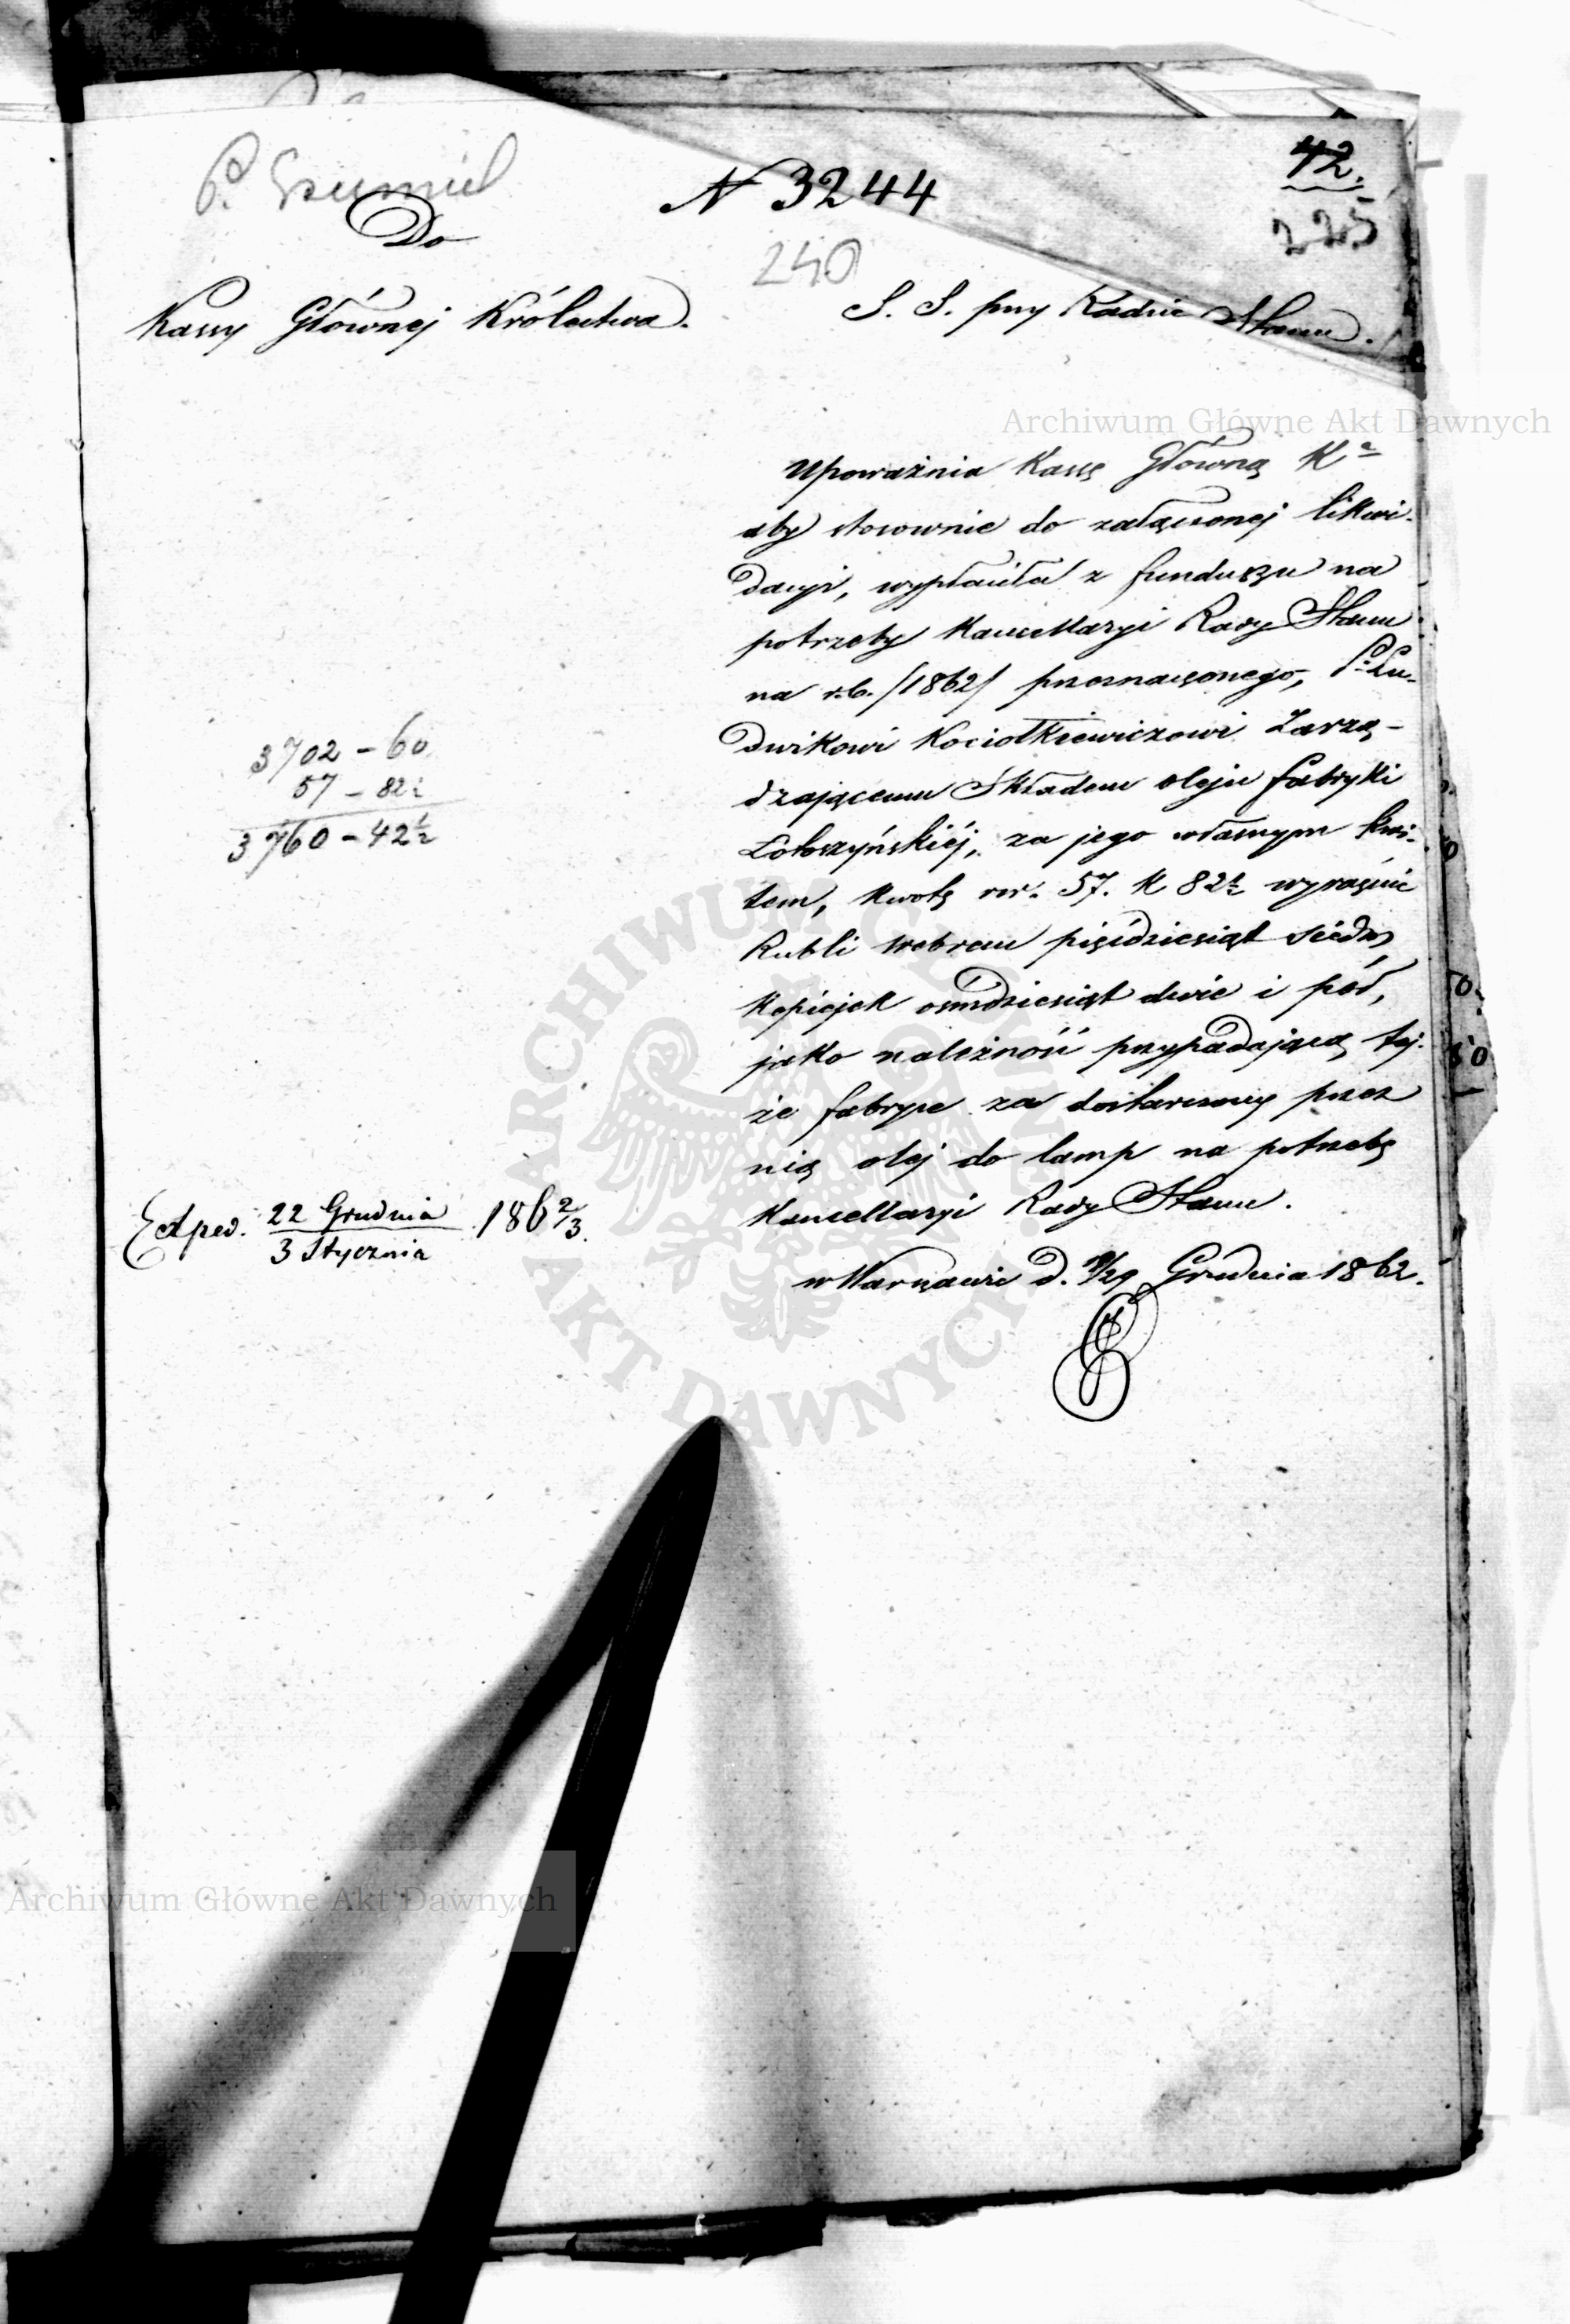 42.
225
P.
N 3244
Do
240
Kassy Głównej Królestwa.
S. S. przy Radzie Stanu.
Archiwum Główne Akt Dawnych
Upoważnia Kassę Główną Kᵃ
aby stosownie do załączonej likwi-
dacyi, wypłaciła z funduszu na
potrzeby Kancellaryi Rady Stanu
na r.b. /1862/ przeznaczonego, P. Lu-
dwikowi Kociołkiewiczowi Zarzą-
dzającemu Składem oleju fabryki
Łotoszyńskiéj, za jego własnym kwi-
tem, kwotę rsr. 57. K 82½ wyraźnie
Rubli srebrem pięćdziesiąt siedm
kopiejek ośmdziesiąt dwie i pół,
jako należność przypadającą tej-
że fabryce za dostarczony przez
nią olej do lamp na potrzebę
Kancellaryi Rady Stanu.
w Warszawie d. 17/29 Grudnia 1862.
3702 - 60
57 - 82½
3760 - 42½
Exped. 22 Grudnia 1862/3.
3 Stycznia
ARCHIWUM GŁÓWNE
AKT DAWNYCH
Archiwum Główne Akt Dawnych